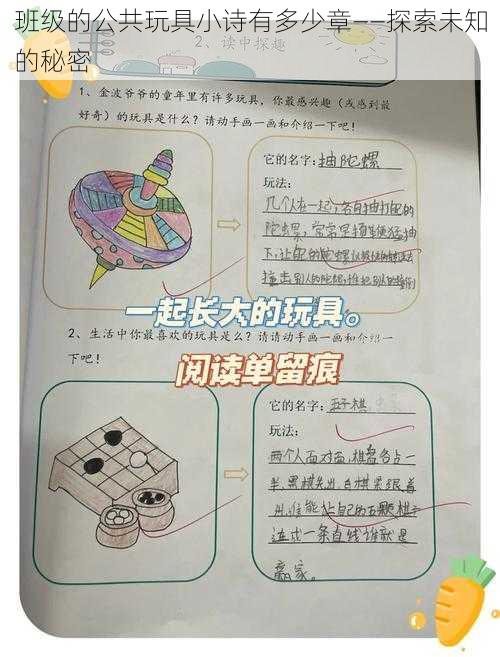 班级的公共玩具小诗有多少章——探索未知
的秘密
2、读中探趣
1、金波爷爷的童年里有许多玩具，你最感兴趣（或感到最
好奇）的玩具是什么？请动手画一画和介绍一下吧！
它的名字：抽陀螺
玩法：
几个人在一起，各自抽打自己的
陀螺，常常
下，让自己的陀螺以极快的
撞击别人的陀螺，
一起长大的玩具。
2、生活中你最喜欢的玩具是么？请请动手画一画和介绍一
下吧！
阅读单留痕
它的名字：五子棋
玩法：
两个人面对面，棋盘各占一
半，黑棋先出，白棋紧跟着
出，谁能让自己的五颗棋子
连成一条直线谁就是
赢家。